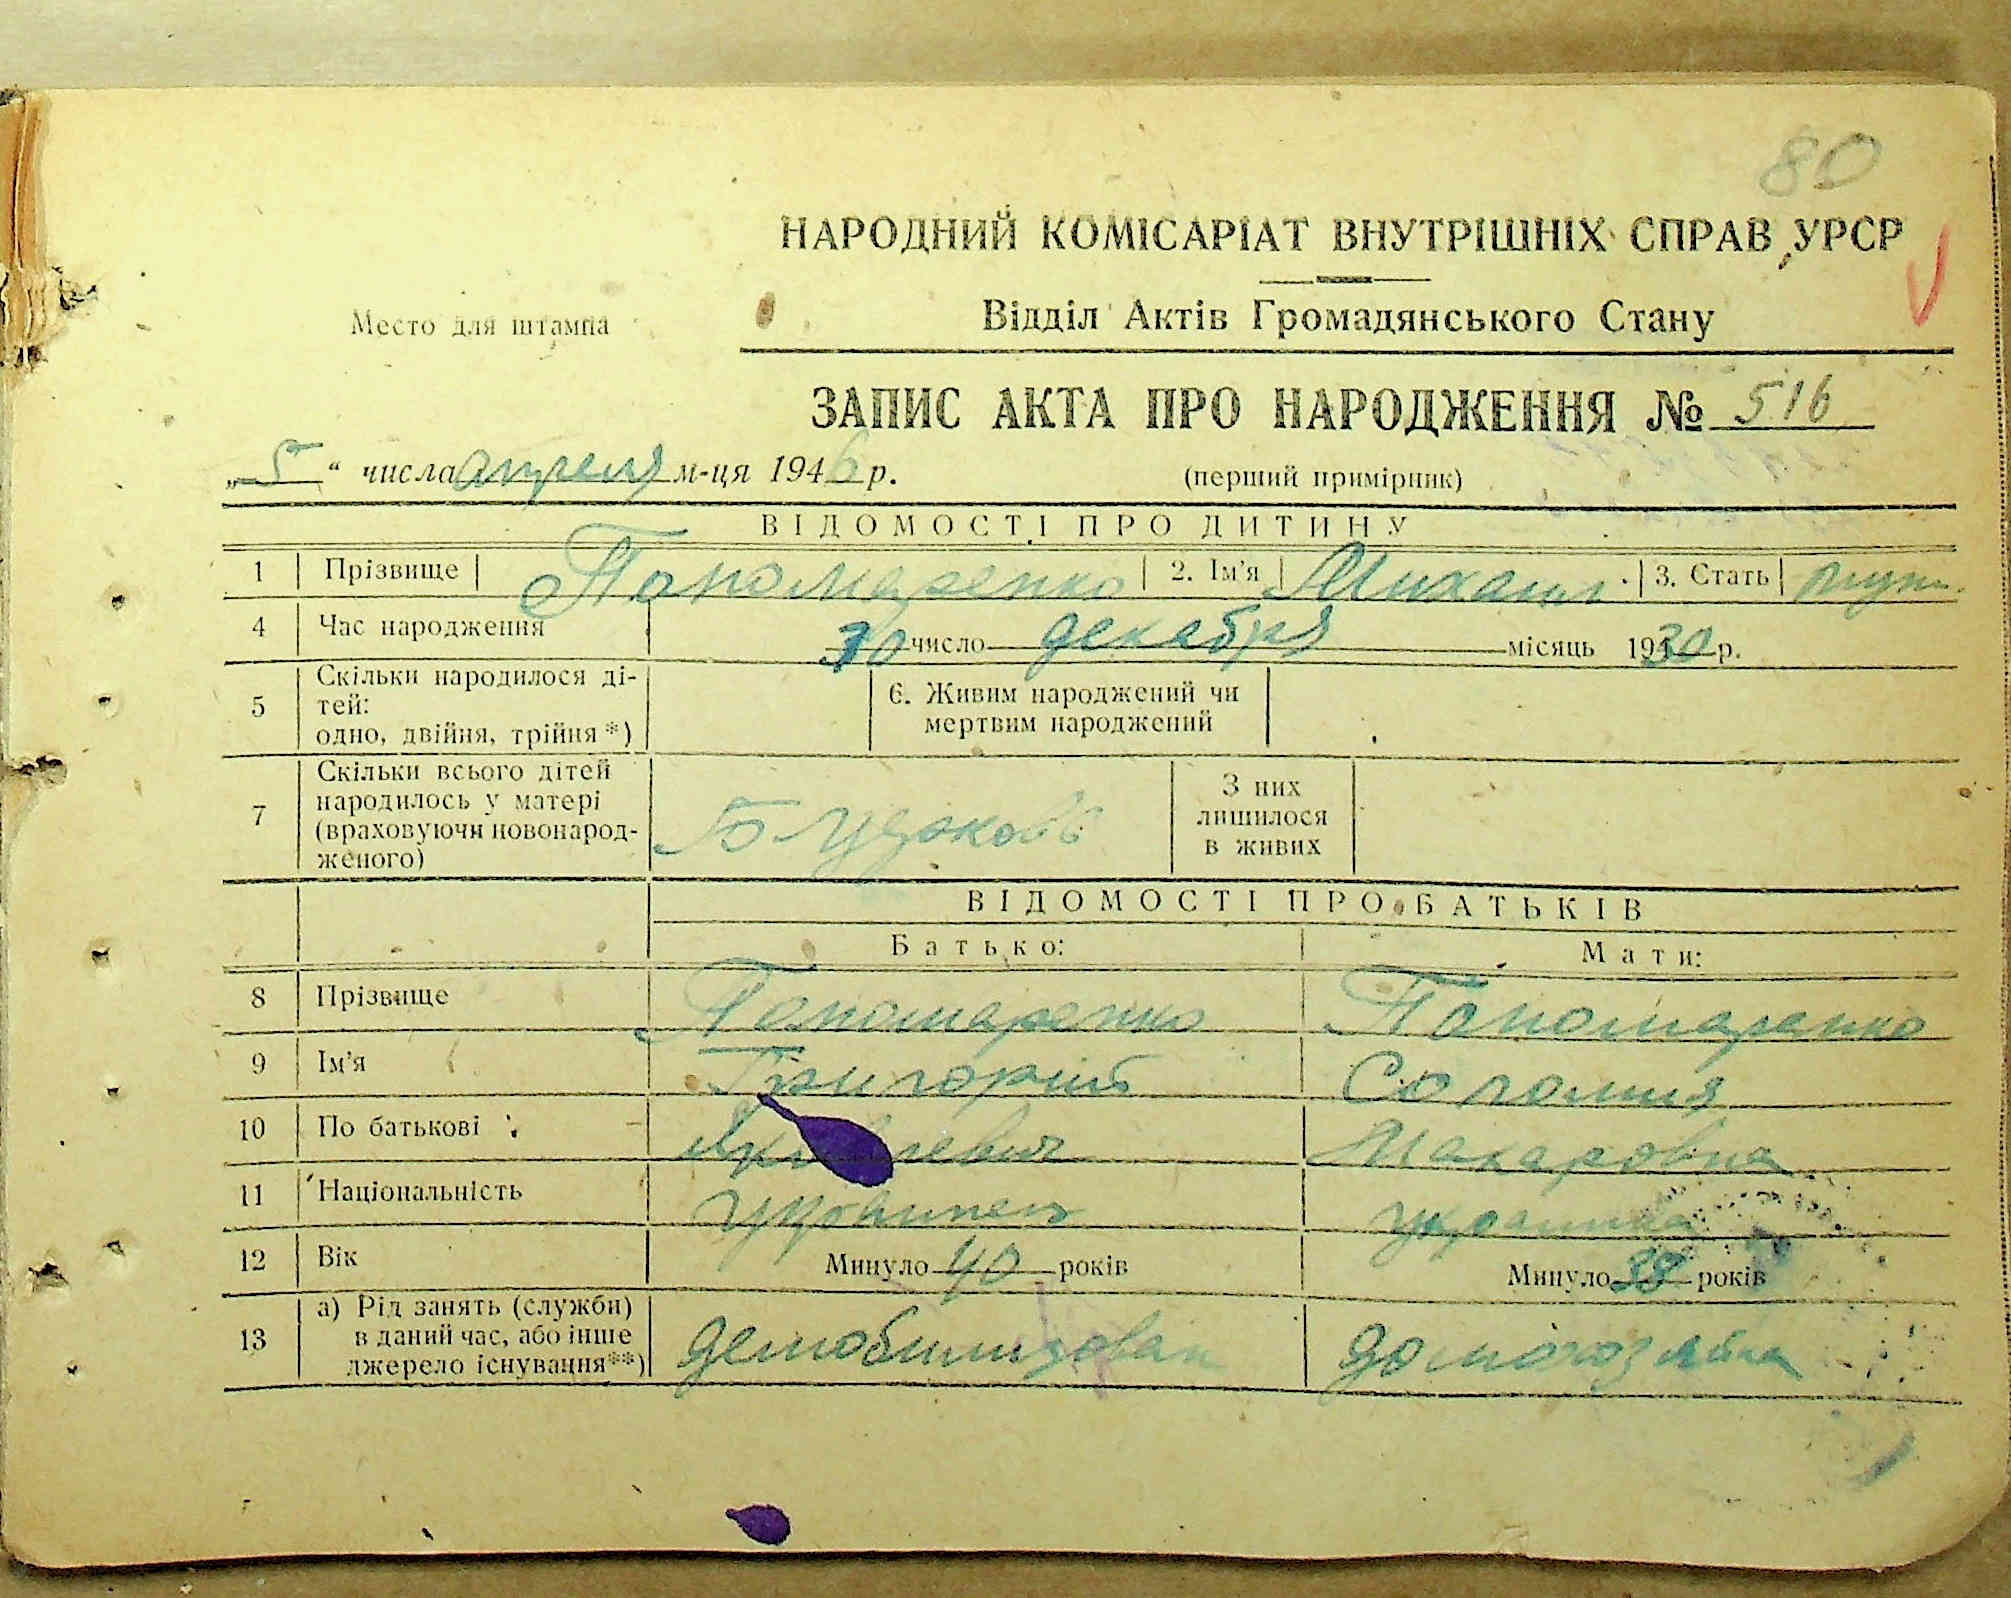 80
НАРОДНИЙ КОМІСАРІАТ ВНУТРІШНІХ СПРАВ УРСР
Место для штампа
Відділ Актів Громадянського Стану
ЗАПИС АКТА ПРО НАРОДЖЕННЯ № 516
„5“ числа апреля м-ця 1946 р. (перший примірник)
ВІДОМОСТІ ПРО ДИТИНУ
1 Прізвище Пономаренко 2. Ім'я Михаил 3. Стать муж.
4 Час народження 30 число декабря місяць 1930 р.
5 Скільки народилося ді-
тей:
одно, двійня, трійня*)
6. Живим народжений чи
мертвим народжений
7 Скільки всього дітей
народилось у матері
(враховуючи новонарод-
женого)
З них
лишилося
в живих
ВІДОМОСТІ ПРО БАТЬКІВ
Батько: Мати:
8 Прізвище Пономаренко Пономаренко
9 Ім'я Григорий Соломия
10 По батькові Яковлевич Макаровна
11 Національність украинец украинка
12 Вік Минуло 40 років Минуло 38 років
13 а) Рід занять (служби)
в даний час, або інше
джерело існування**)
демобилизован домохозяйка